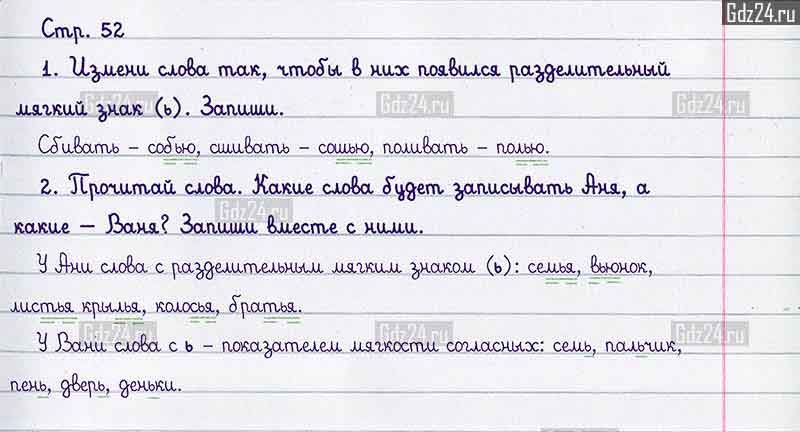 Gdz24.ru
Стр. 52
1. Измени слова так, чтобы в них появился разделительный
мягкий знак (ь). Запиши.
Gdz24.ru Gdz24.ru Gdz24.ru
Сбивать – собью, сшивать – сошью, поливать – полью.
2. Прочитай слова. Какие слова будет записывать Аня, а
Gdz24.ru
какие – Ваня? Запиши вместе с ними.
У Ани слова с разделительным мягким знаком (ь): семья, вьюнок,
листья крылья, колосья, братья.
Gdz24.ru Gdz24.ru Gdz24.ru
У Вани слова с ь – показателем мягкости согласных: семь, пальчик,
пень, дверь, деньки.